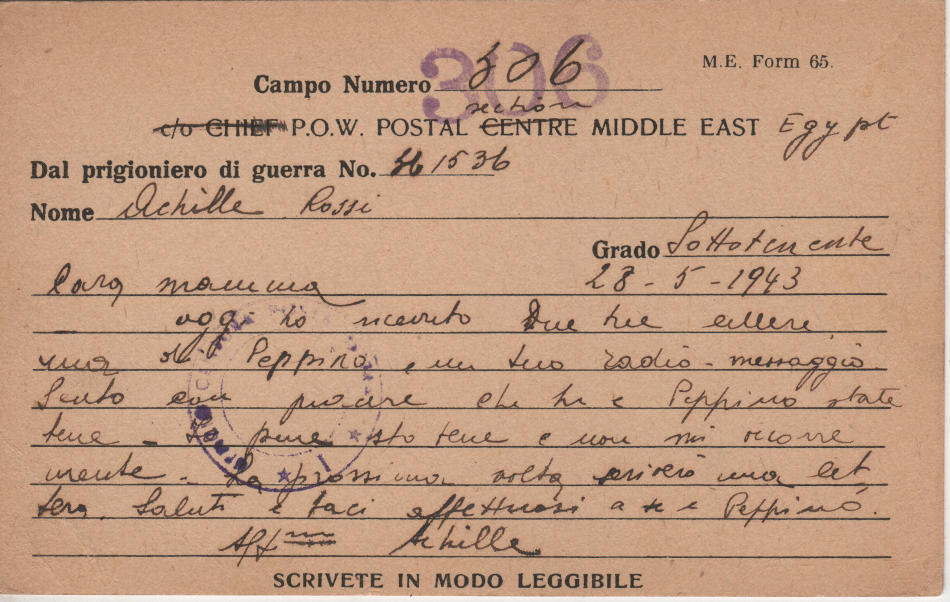 306
Campo Numero 306
M.E. Form 65.
section
c/o CHIEF P.O.W. POSTAL CENTRE MIDDLE EAST Egypt
Dal prigioniero di guerra No. 361536
Nome Achille Rossi
Grado Sottotenente
Cara mamma 28-5-1943
oggi ho ricevuto due tue lettere
una di Peppino e un tuo radio-messaggio.
Sento con piacere che tu e Peppino state
bene - Io pure sto bene e non mi occorre
niente. La prossima volta scriverò una let
tera. Saluti e baci affettuosi a te e Peppino.
Aff.mo Achille
SCRIVETE IN MODO LEGGIBILE